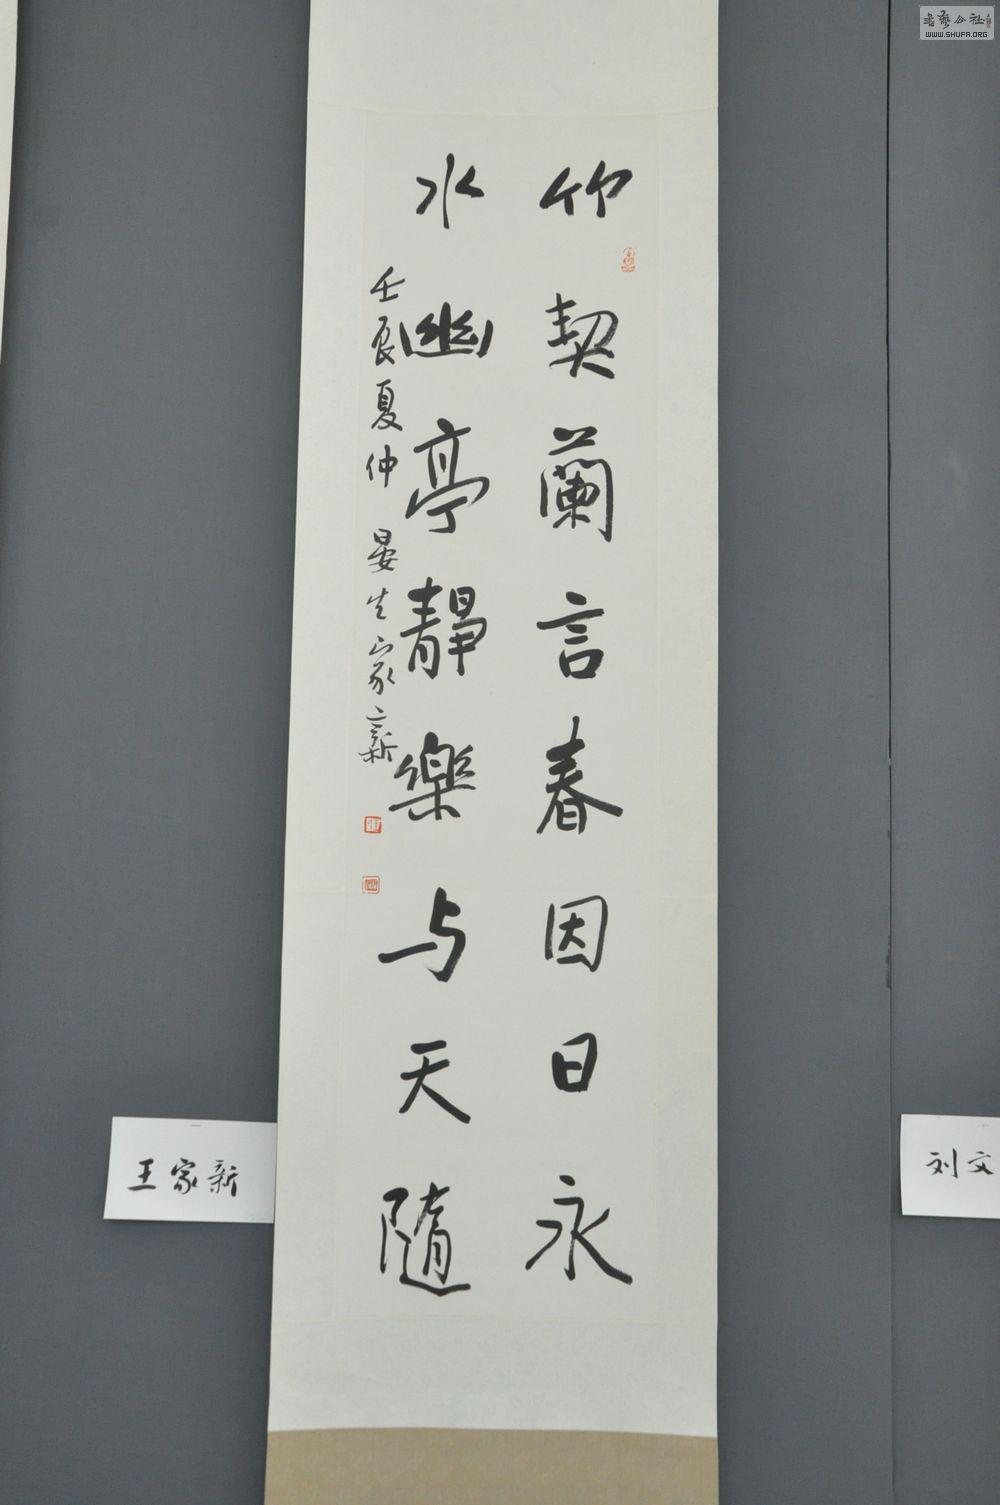 竹契蘭言春因日永
水幽亭靜樂与天隨
壬辰夏仲 晏生家新
王家新
刘文
书艺公社
WWW.SHUFA.ORG